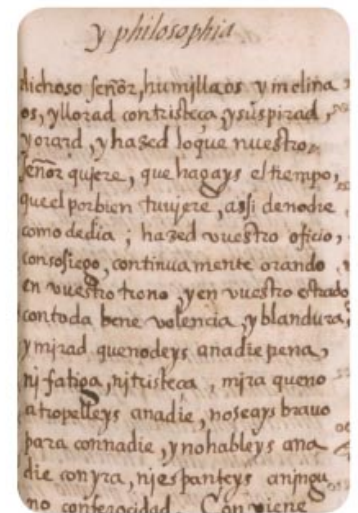 y philosophia
dichoso señor, humillaos y inclina
os, y llorad con tristeça, y suspirad,
y orard, y hazed lo que nuestro
señor quiere, que hagays el tiempo,
que el por bien tuujere, assi de noche
como de dia; hazed vuestro oficio,
con sosiego, continuamente orando
en vuestro trono, y en vuestro estrado
con toda bene volencia, y blandura,
y mirad que no deys a nadie pena,
nj fatiga, nj tristeça, mira que no
atropelleys a nadie, no seays brauo
para con nadie, y no hableys a na
die con yra, nj espanteys a njngu
no con ferocidad. Conviene